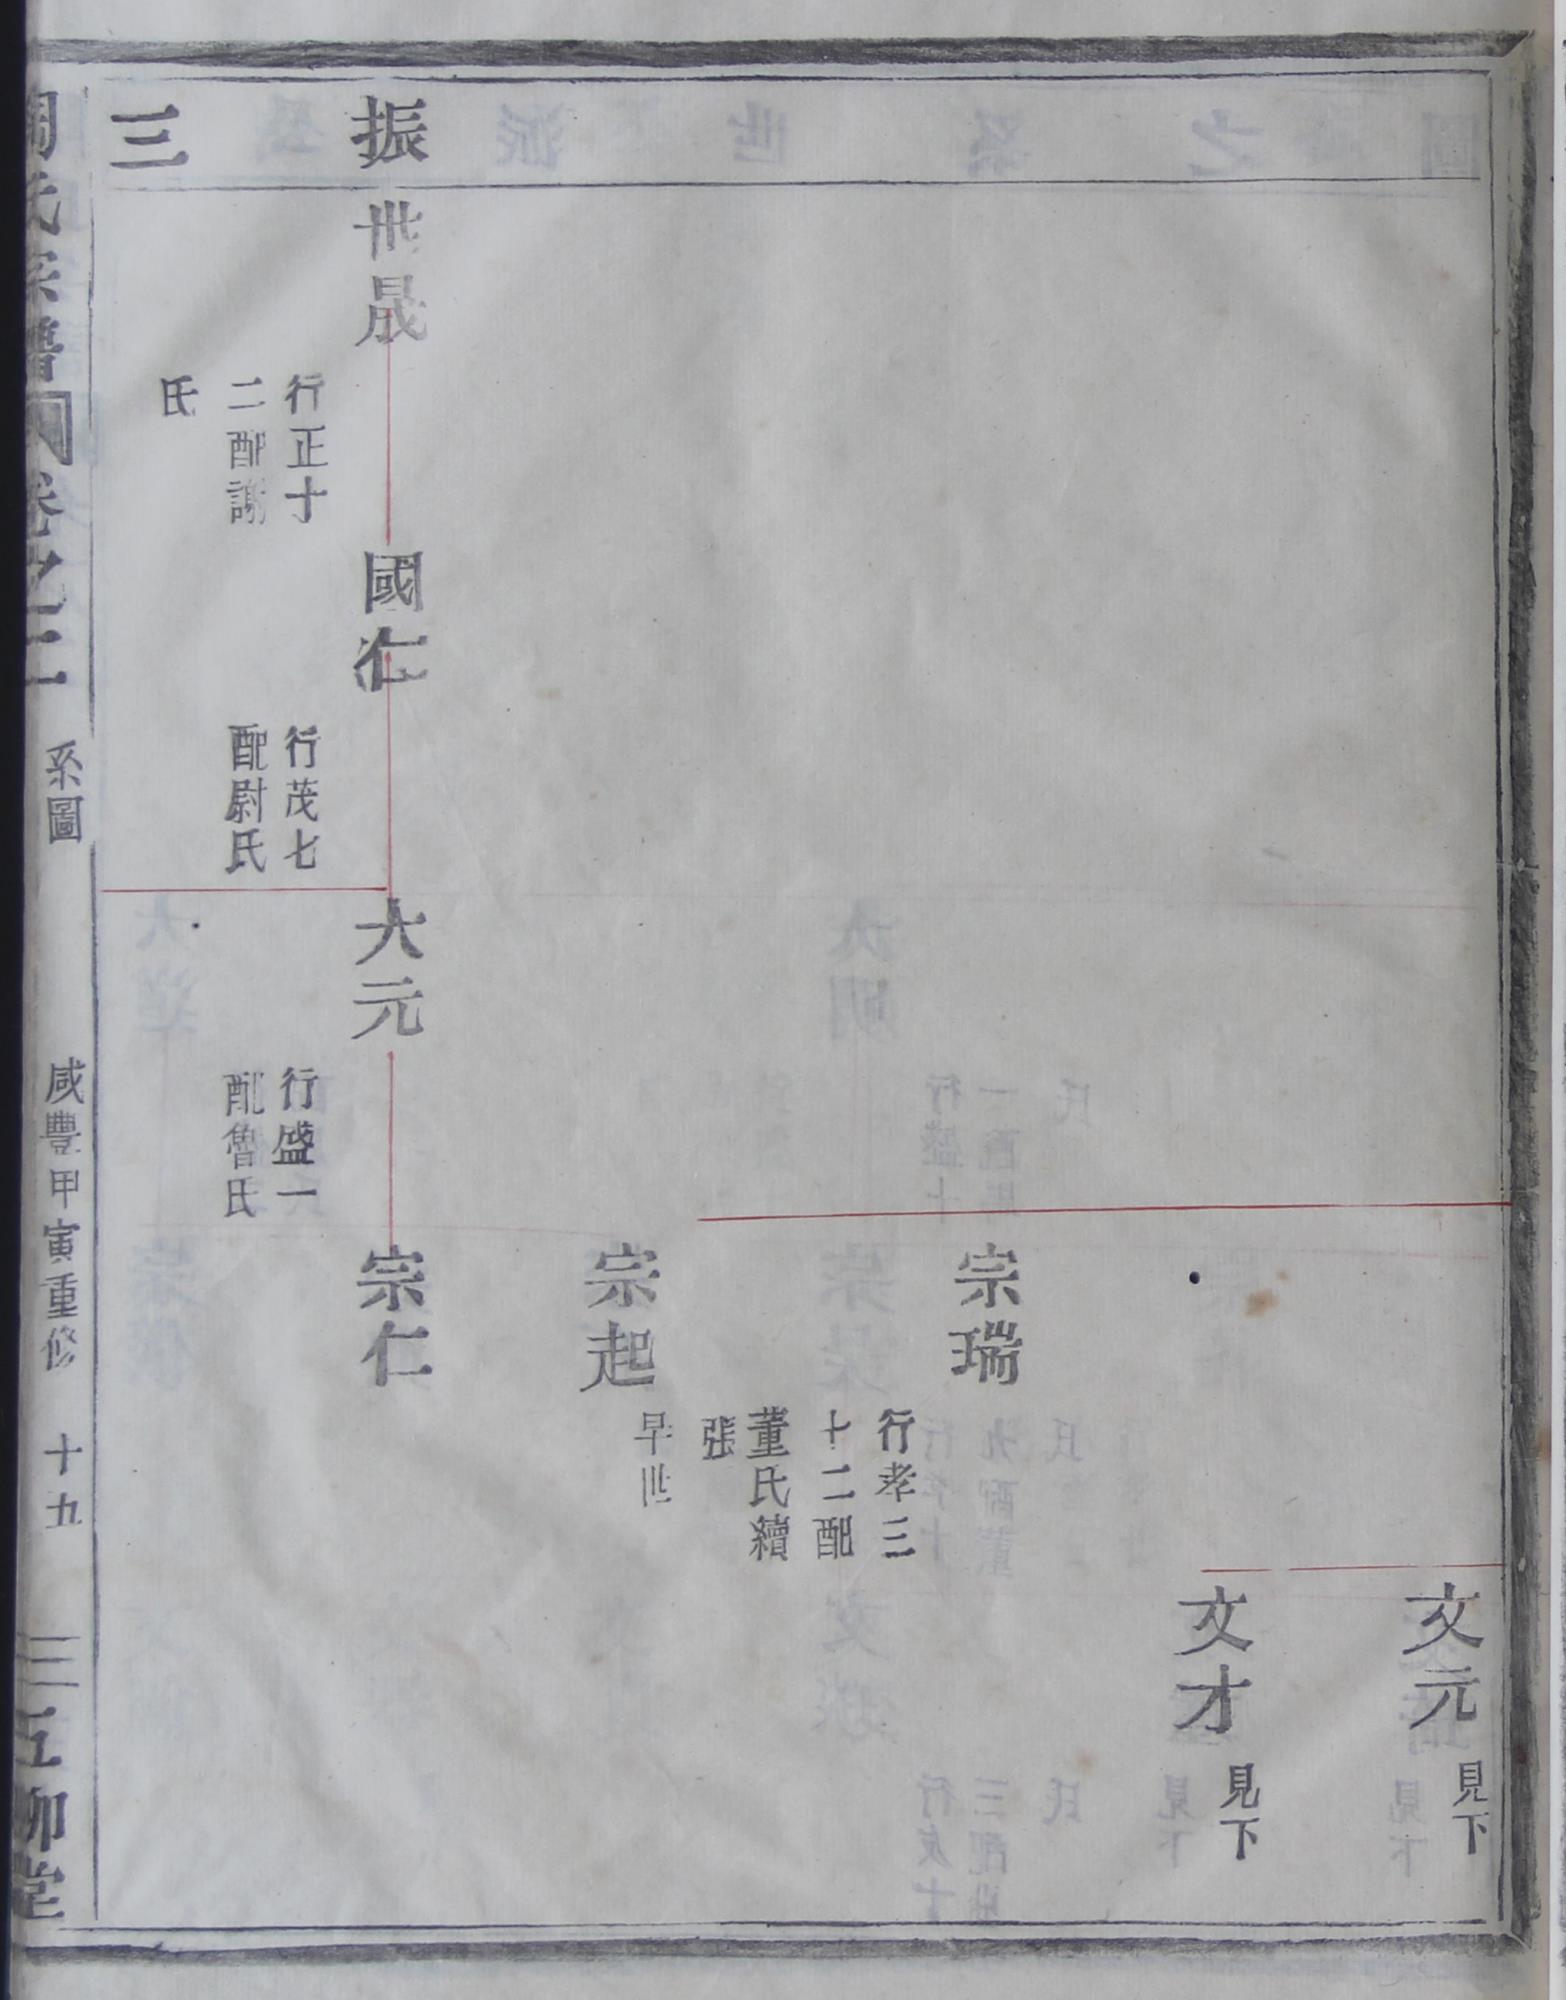 振
三
世晟
行正十
二配謝
氏
國仁
行茂七
配尉氏
大元
行盛一
配魯氏
文元
見下
文才
見下
宗瑞
行孝三
十二配
董氏續
張
宗起
早世
宗仁
氏宗譜
卷之二
系圖
咸豐甲寅重修
十九
五柳堂